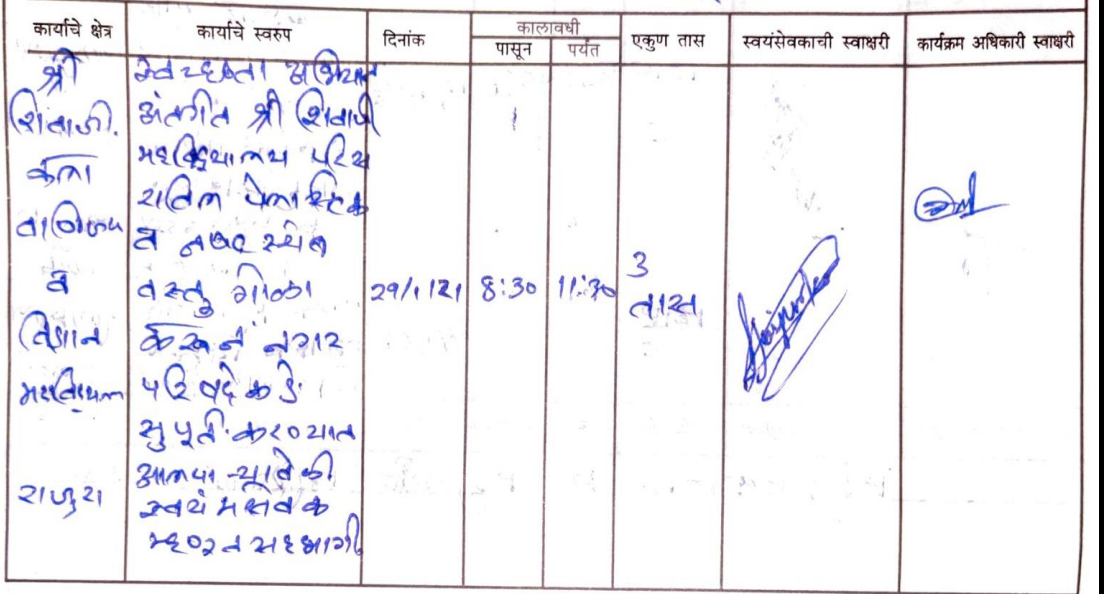 कार्याचे क्षेत्र कार्याचे स्वरुप दिनांक कालावधी एकुण तास स्वयंसेवकाची स्वाक्षरी कार्यक्रम अधिकारी स्वाक्षरी
पासून पर्यंत
श्री
शिवाजी.
कला
वाणिज्य
व
विज्ञान
महाविद्यालय
राजुरा
स्वच्छता अभियान
अंतर्गत श्री शिवाजी
महाविद्यालय परिस
रातिल
व
वस्तु गोळा
करून नगर
परिषदेकडे.
सुपूर्त करण्यात
आल्या
स्वयंमसेवक
म्हणून सहभागी
29/1/21 8:30 11:30
3
तास